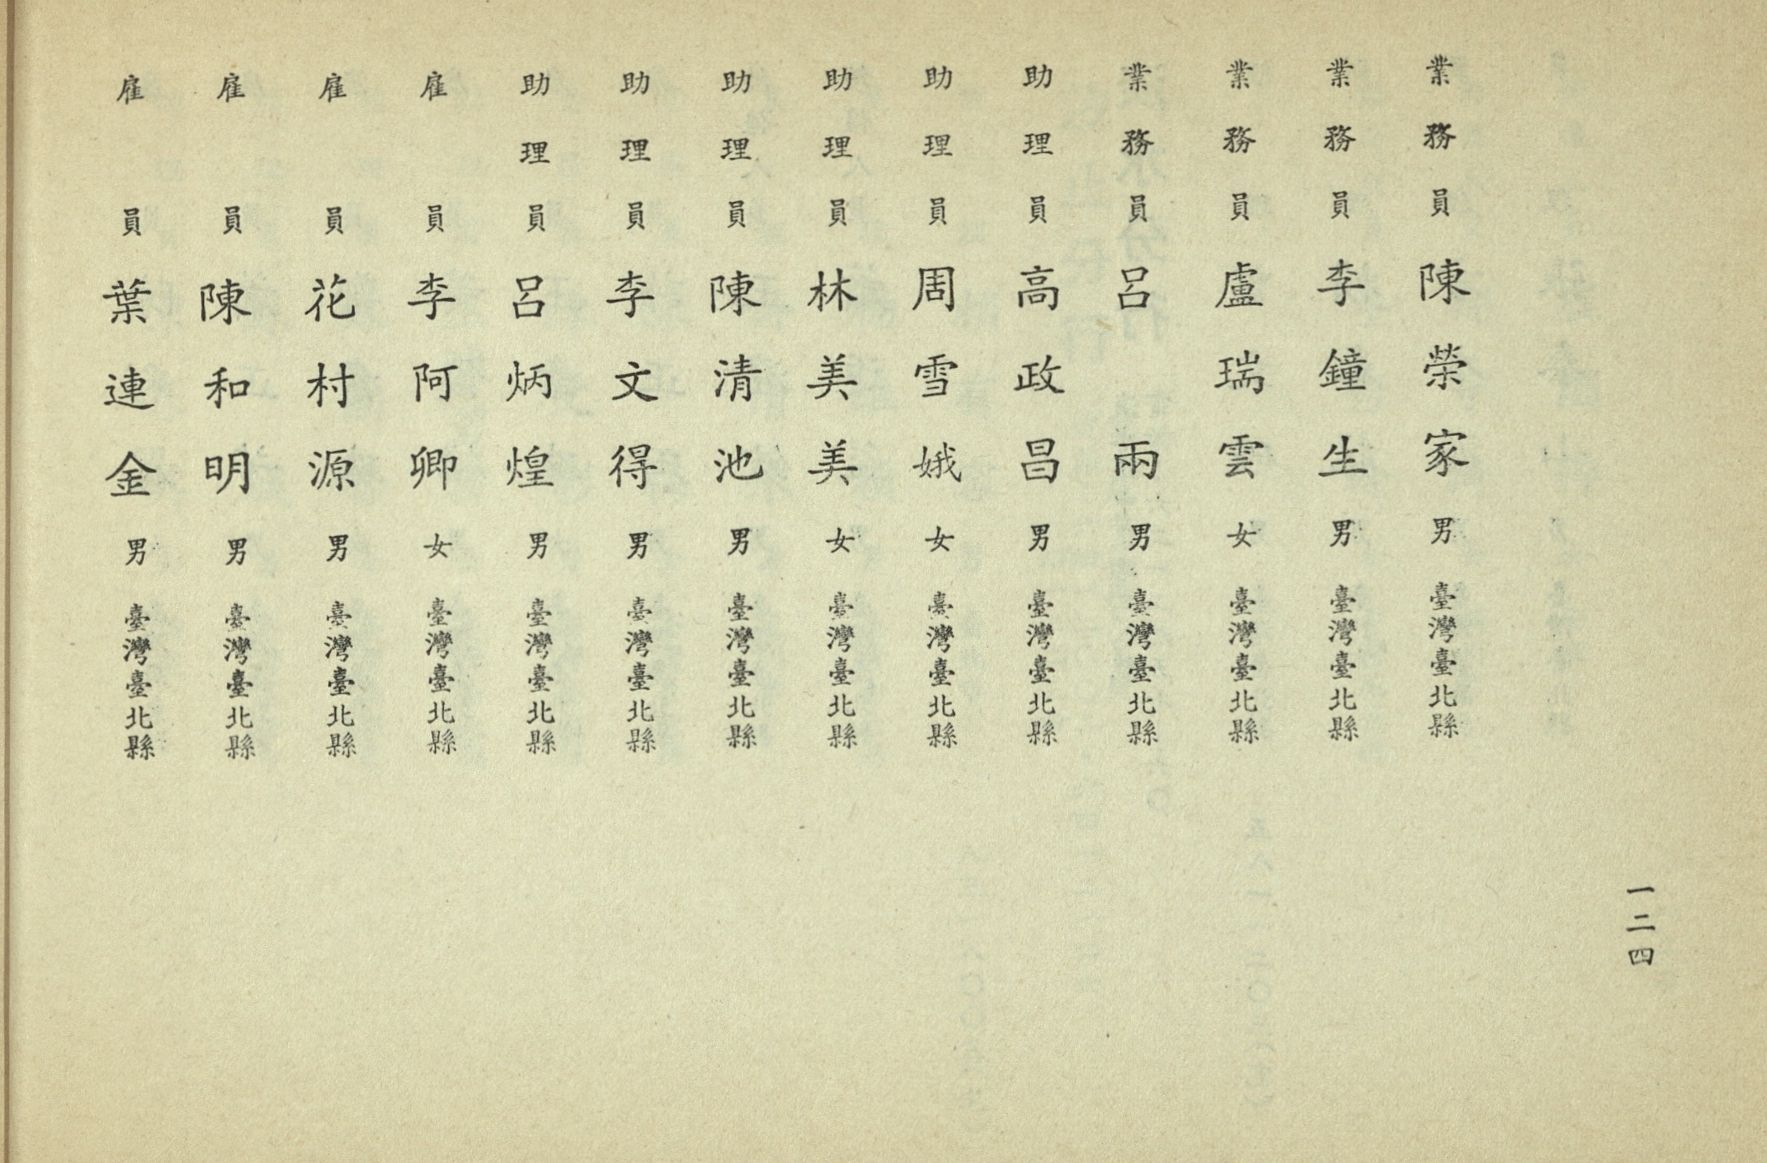 一二四
業務員 陳榮家 男 臺灣臺北縣
業務員 李鐘生 男 臺灣臺北縣
業務員 盧瑞雲 女 臺灣臺北縣
業務員 呂 兩 男 臺灣臺北縣
助理員 高政昌 男 臺灣臺北縣
助理員 周雪娥 女 臺灣臺北縣
助理員 林美美 女 臺灣臺北縣
助理員 陳清池 男 臺灣臺北縣
助理員 李文得 男 臺灣臺北縣
助理員 呂炳煌 男 臺灣臺北縣
雇 員 李阿卿 女 臺灣臺北縣
雇 員 花村源 男 臺灣臺北縣
雇 員 陳和明 男 臺灣臺北縣
雇 員 葉連金 男 臺灣臺北縣